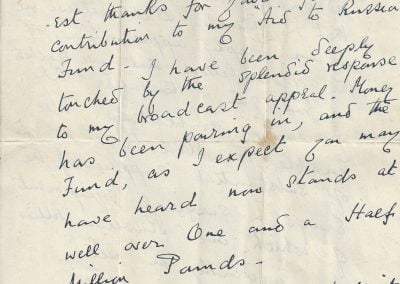 -est thanks for your
contribution to my "Aid to Russia
Fund - I have been deeply
touched by the splendid response
to my broadcast appeal. Money
has been pouring in, and the
Fund, as I expect you may
have heard now stands at
well over One and a Half
Million Pounds -